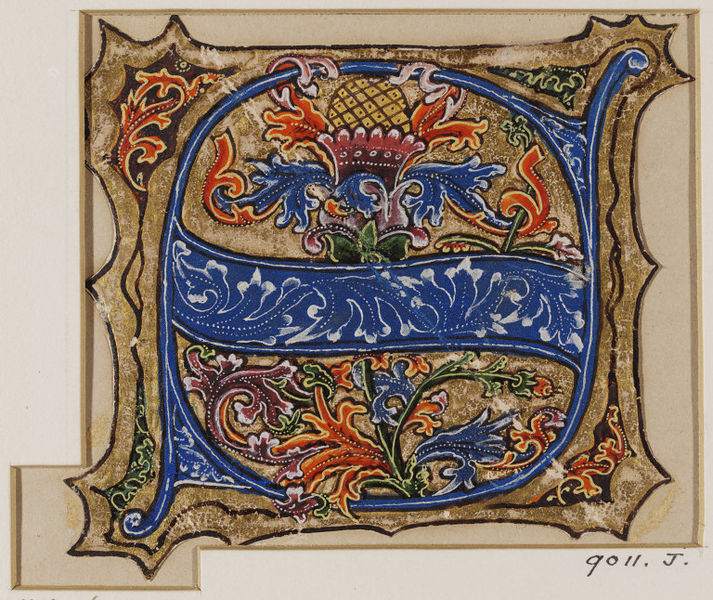 S
9011. J.